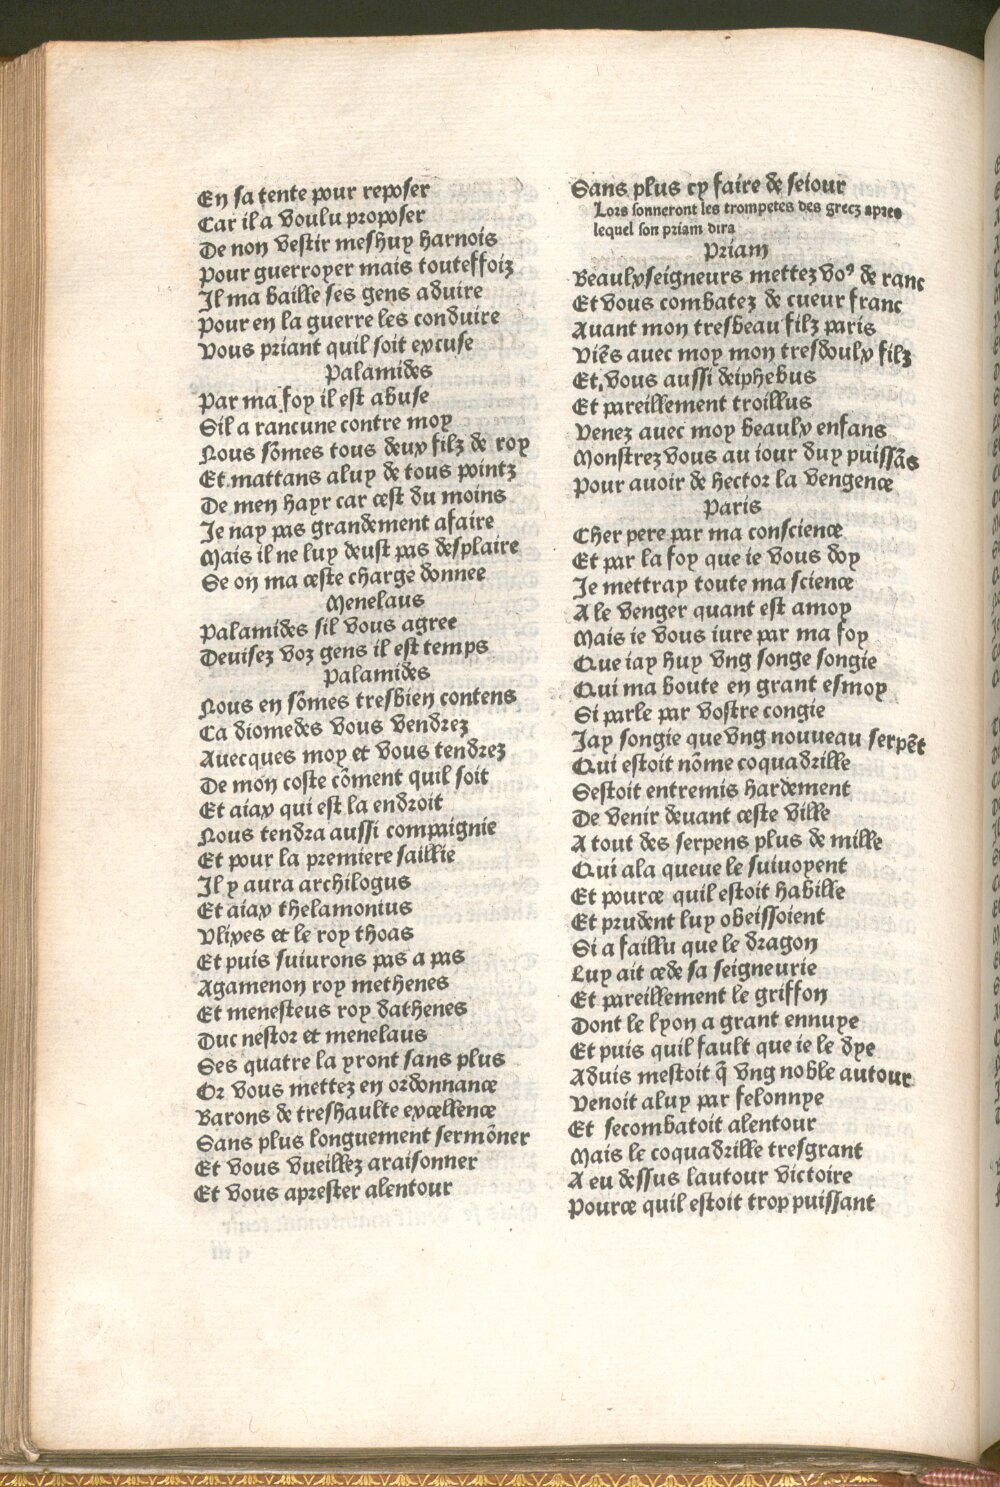 En sa tente pour reposer
Car il a voulu proposer
De non vestir meshuy harnois
Pour guerroyer mais touteffoiz
Il ma baille ses gens aduire
Pour en la guerre les conduire
Vous priant quil soit excuse
Palamides
Par ma foy il est abuse
Sil a rancune contre moy
Nous sõmes tous deux filz de roy
Et mattans aluy de tous pointz
De men hayr car cest du moins
Je nay pas grandement afaire
Mais il ne luy deust pas desplaire
Se on ma ceste charge donnee
Menelaus
Palamides sil vous agree
Deuisez voz gens il est temps
Palamides
Nous en sõmes tresbien contens
Ca diomedes vous vendrez
Auecques moy et vous tendrez
De mon coste cõment quil soit
Et aiax qui est la endroit
Nous tendra aussi compaignie
Et pour la premiere saillie
Il y aura archilogus
Et aiax thelamonius
Vlixes et le roy thoas
Et puis suiurons pas a pas
Agamenon roy methenes
Et menesteus roy dathenes
Duc nestor et menelaus
Ses quatre la yront sans plus
Or vous mettez en ordonnance
Barons de treshaulte excellence
Sans plus longuement sermõner
Et vous vueillez araisonner
Et vous aprester alentour
Sans plus cy faire de seiour
Lors sonneront les trompetes des grecz apres
lequel son priam dira
Priam
Beaulx seigneurs mettez voꝰ de ranc
Et vous combatez de cueur franc
Auant mon tresbeau filz paris
Viẽs auec moy mon tresdoulx filz
Et vous aussi deiphebus
Et pareillement troillus
Venez auec moy beaulx enfans
Monstrez vous au iour duy puissãs
Pour auoir de hector la vengence
Paris
Cher pere par ma conscience
Et par la foy que ie vous doy
Je mettray toute ma science
A le venger quant est amoy
Mais ie vous iure par ma foy
Que iay huy vng songe songie
Qui ma boute en grant esmoy
Si parle par vostre congie
Jay songie que vng nouueau serpẽt
Qui estoit nõme coquadrille
Sestoit entremis hardement
De venir deuant ceste ville
A tout des serpens plus de mille
Qui ala queue le suiuoyent
Et pource quil estoit habille
Et prudent luy obeissoient
Si a faillu que le dragon
Luy ait cede sa seigneurie
Et pareillement le griffon
Dont le lyon a grant ennuye
Et puis quil fault que ie le dye
Aduis mestoit q̃ vng noble autour
Venoit aluy par felonnye
Et secombatoit alentour
Mais le coquadrille tresgrant
A eu dessus lautour victoire
Pource quil estoit trop puissant